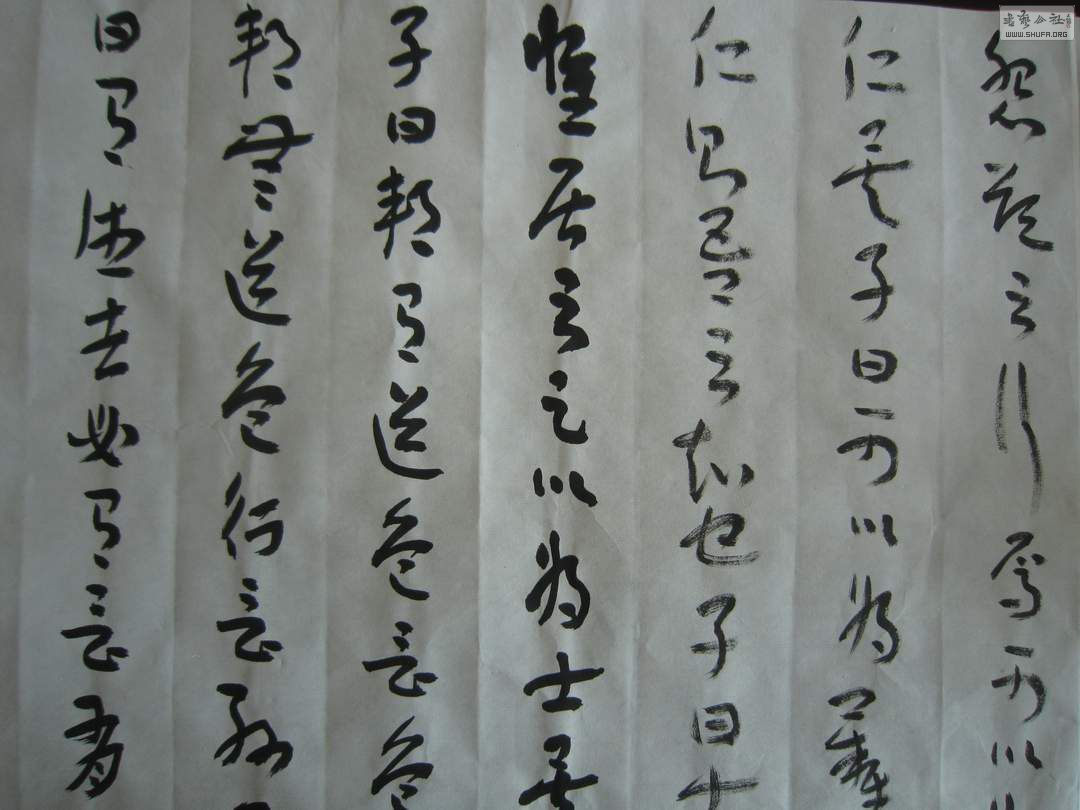 怨欲不行焉可以
仁矣子曰可以為難
仁則吾不知也子曰士
懷居不足以為士矣
子曰邦有道危言危
邦無道危行言孫
曰有德者必有言有
書藝公社
WWW.SHUFA.ORG